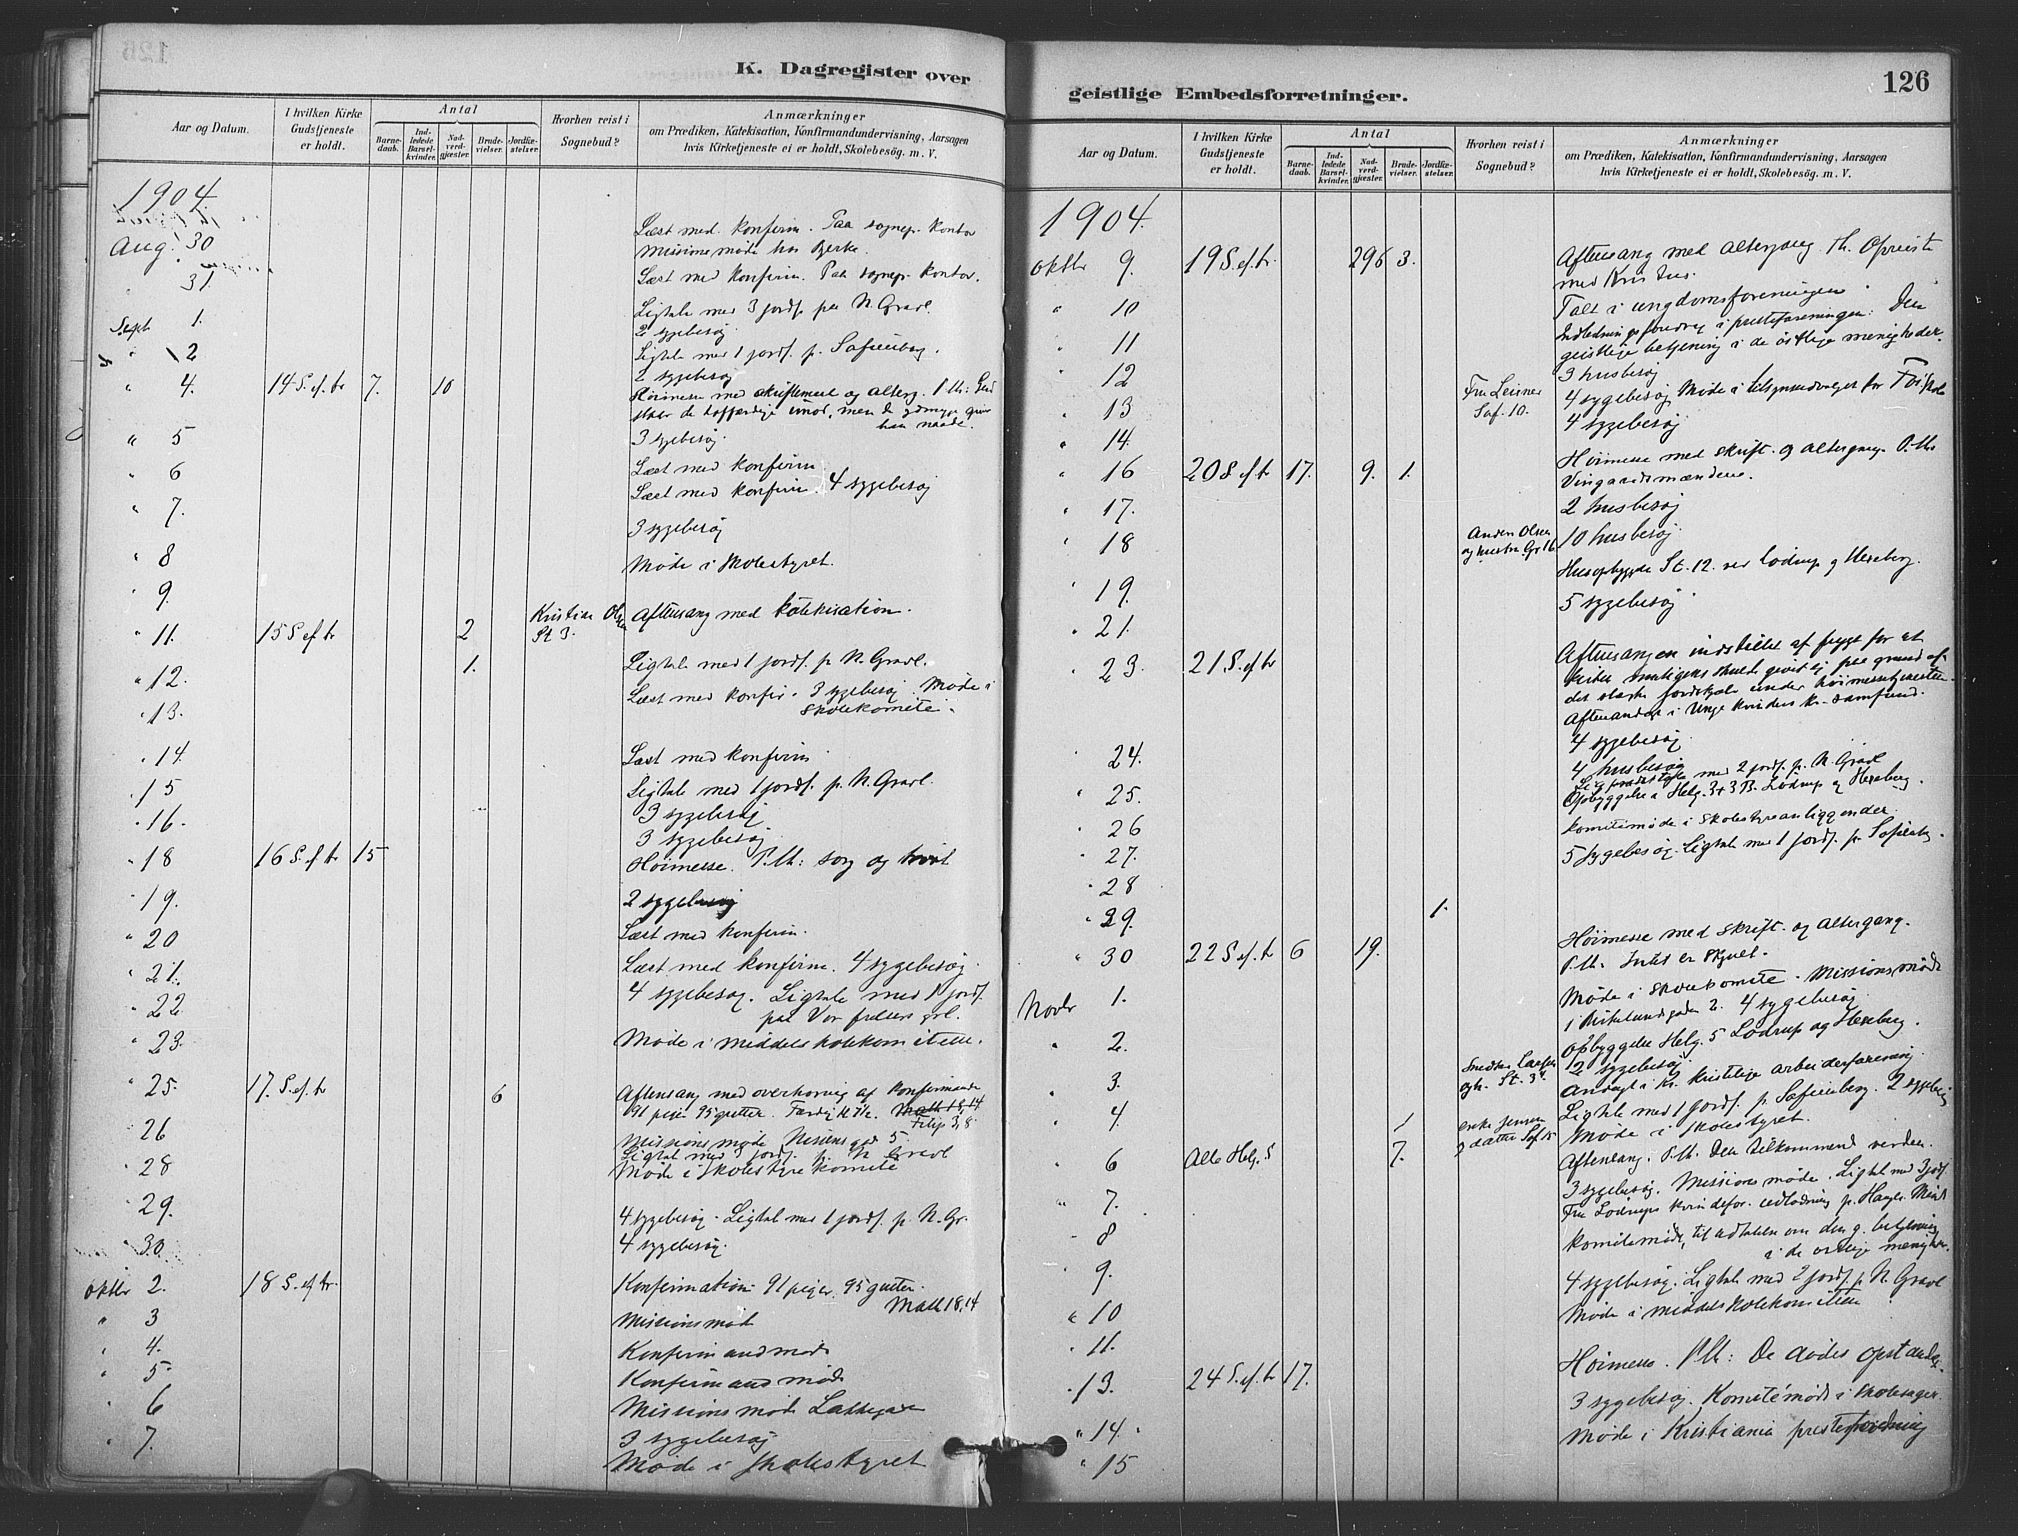 K. Dagregister over
Aar og Datum.
I hvilken Kirke Gudstjeneste er holdt.
Antal
Barnedaab.
Indledede Barselkvinder.
Nadverdgjæster.
Brudevielser.
Jordfæstelser.
Hvorhen reist i Sognebud?
Anmærkninger
om Prædiken, Katekisation, Konfirmandundervisning, Aarsagen
hvis Kirketjeneste ei er holdt, Skolebesög. m. V.
1904
Aug. 30 Læst med konfirm. Paa sognepr. kontor
Missionsmöde hos Bjerke
" 31. Læst med konfirm. Paa sognepr. kontor.
Sept 1. Ligtale med 3 jordf. paa N. Gravl.
2 sygebesög
" 2 Ligtale med 1 jordf. p. Sofienberg.
2 sygebesög
" 4. 14 S. ef. tr 7. 10 Höimesse med skriftemaal og alterg. P. th: Gud
staar de hoffærdige imod, men de ydmyge giver
han naade.
" 5 3 sygebesög.
" 6 Læst med konfirm
" 7. Læst med konfirm. 4 sygebesög
" 8 3 sygebesög
" 9. Möde i Skolestyret.
" 11. 15 S ef tr 2 Kristian Olsen St 3. Aftensang med katekisation.
" 12. 1. Ligtale med 1 jordf. p. N. Gravl.
" 13. Læst med konfir. 3 sygebesög. Möde i
skolekomite.
" 14. Læst med konfirm
" 15 Ligtale med 1 jordf. p. N. Gravl.
3 sygebesög
" 16. 3 sygebesög
" 18 16 S. ef tr 15 Höimesse. P. th: sorg og
" 19. 2 sygebesög
" 20 Læst med konfirm.
" 21. Læst med konfirm. 4 sygebesög
" 22 4 sygebesög. Ligtale med 1 jordf.
paa Vor frelsers grl.
" 23. Möde i middelskolekomiteen.
" 25. 17. S. ef. tr 6 Aftensang med overhöring af konfirmander
91 piger 95 gutter. Matt 18,14
Filip 3,8
" 26 Missionsmöde 5
Ligtal med 3 jordf. p. N Gravl
" 28 Möde i skolestyrekomite
" 29. 4 sygebesög. Ligtal med 1 jordf. p. N. Gr.
" 30 4 sygebesög.
Oktbr 2. 18 S. ef tr. Konfirmation 91 piger 95 gutter.
Matt 18,14
" 3 Missionsmöde
" 4. Konfirmandmöde
" 5 Konfirmandmöde
" 6 Missionsmöde
" 7. 3 sygebesög
Möde i Skolestyret
geistlige Embedsforretninger.
126
Aar og Datum.
I hvilken Kirke Gudstjeneste er holdt.
Antal
Barnedaab.
Indledede Barselkvinder.
Nadverdgjæster.
Brudevielser.
Jordfæstelser.
Hvorhen reist i Sognebud?
Anmærkninger
om Prædiken, Katekisation, Konfirmandundervisning, Aarsagen
hvis Kirketjeneste ei er holdt, Skolebesög. m. V.
1904.
Oktbr 9. 19 S. ef. tr. 296 3. Aftensang med altergang. Th. Opreist
med Kristus.
" 10 Talt i ungdomsforeningen
" 11 Indledningsforedrag i presteforeningen: Den
geistlige betjening i de östlige menigheder.
" 12 3 husbesög
" 13 Fru Leisner Sof. 10. 4 sygebesög Möde i tilsynsudvalget for
" 14. 4 sygebesög
" 16 20 S ef tr 17. 9. 1. Höimesse med skrift. og altergang. P. th:
Vingaardsmændene.
" 17. 2 husbesög
" 18 Anders Olsen og hustru Gr 16 10 husbesög
" 19. Husopbygge St. 12. ved Lodrup og Hexeberg.
" 21. 5 sygebesög
" 23. 21. S. ef tr Aftensangen indstillet af frygt for at
kirken muligens skulde givet ej paa grund af
det stærke jordskjælv under höimessetjenesten.
Aftenandagt i Unge kvinders kr. samfund.
" 24. 4 sygebesög.
" 25. 4 husbesög
med 2 jordf. p. N. Gravl
Opbyggelse Helg. 3+3 B. Lodrup og Hexeberg.
" 26 Komitemöde i skolestyreanliggender.
" 27. 5 sygebesög. Ligtale med 1 jordf. p. Sofienbg.
" 28
" 29. 1.
" 30 22 S. ef. tr 6 19. Höimesse med skrift. og altergang.
P. th. Intet er skjult.
Novbr 1. Möde i skolekomite. Missionsmöde
i Birkelundgaden 2. 4 sygebesög
" 2. Opbyggelse Helg. 5 Lodrup og Hexeberg.
2 sygebesög
" 3. Larsen St. 3. Andagt i Kr. kristelige arbeiderforening
" 4. 1 Enke Jensen og datter Sof. 15 Ligtale med 1 jordf. p. Sofienberg. 2 sygebesög
Möde i Skolestyret.
" 6 Alle Helg. S 7. Aftensang. P. th. Den tilkommende verden.
" 7. 3 sygebesög. Missionsmöde. Ligtal med 3 jordf.
Fru Lodrups kvindefor. udlodning p. Hauges Minde
" 8 Komitemöde, til udtalelse om den g. betjening
i de östlige menigheder.
" 9. 4 sygebesög. Ligtale med 2 jordf. p. N. Gravl
" 10 Möde i middelskolekomiteen
" 11.
" 13. 24 S. ef. tr 17. Höimesse. P. th: De dödes opstandelse.
" 14. 3 sygebesög. Komitemöde i skolesager.
" 15 Möde i Kristiania presteforening